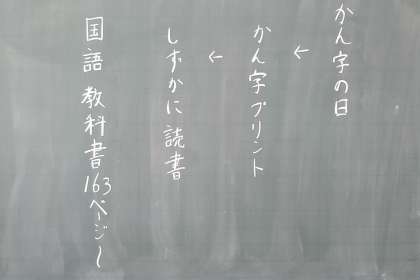 かん字の日
↓
かん字プリント
↓
しずかに読書
国語 教科書163ページ〜